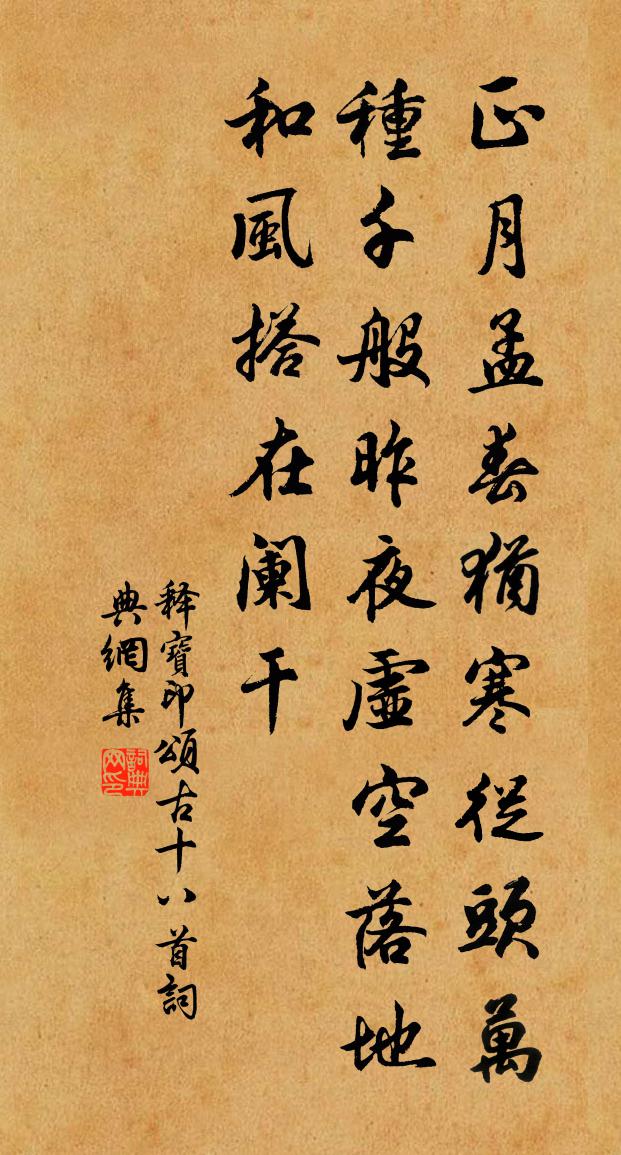 正月孟春猶寒從頭萬
種千般昨夜虛空落地
和風搭在阑干
释寶印頌古十八首詞
典網集
詞典
网印